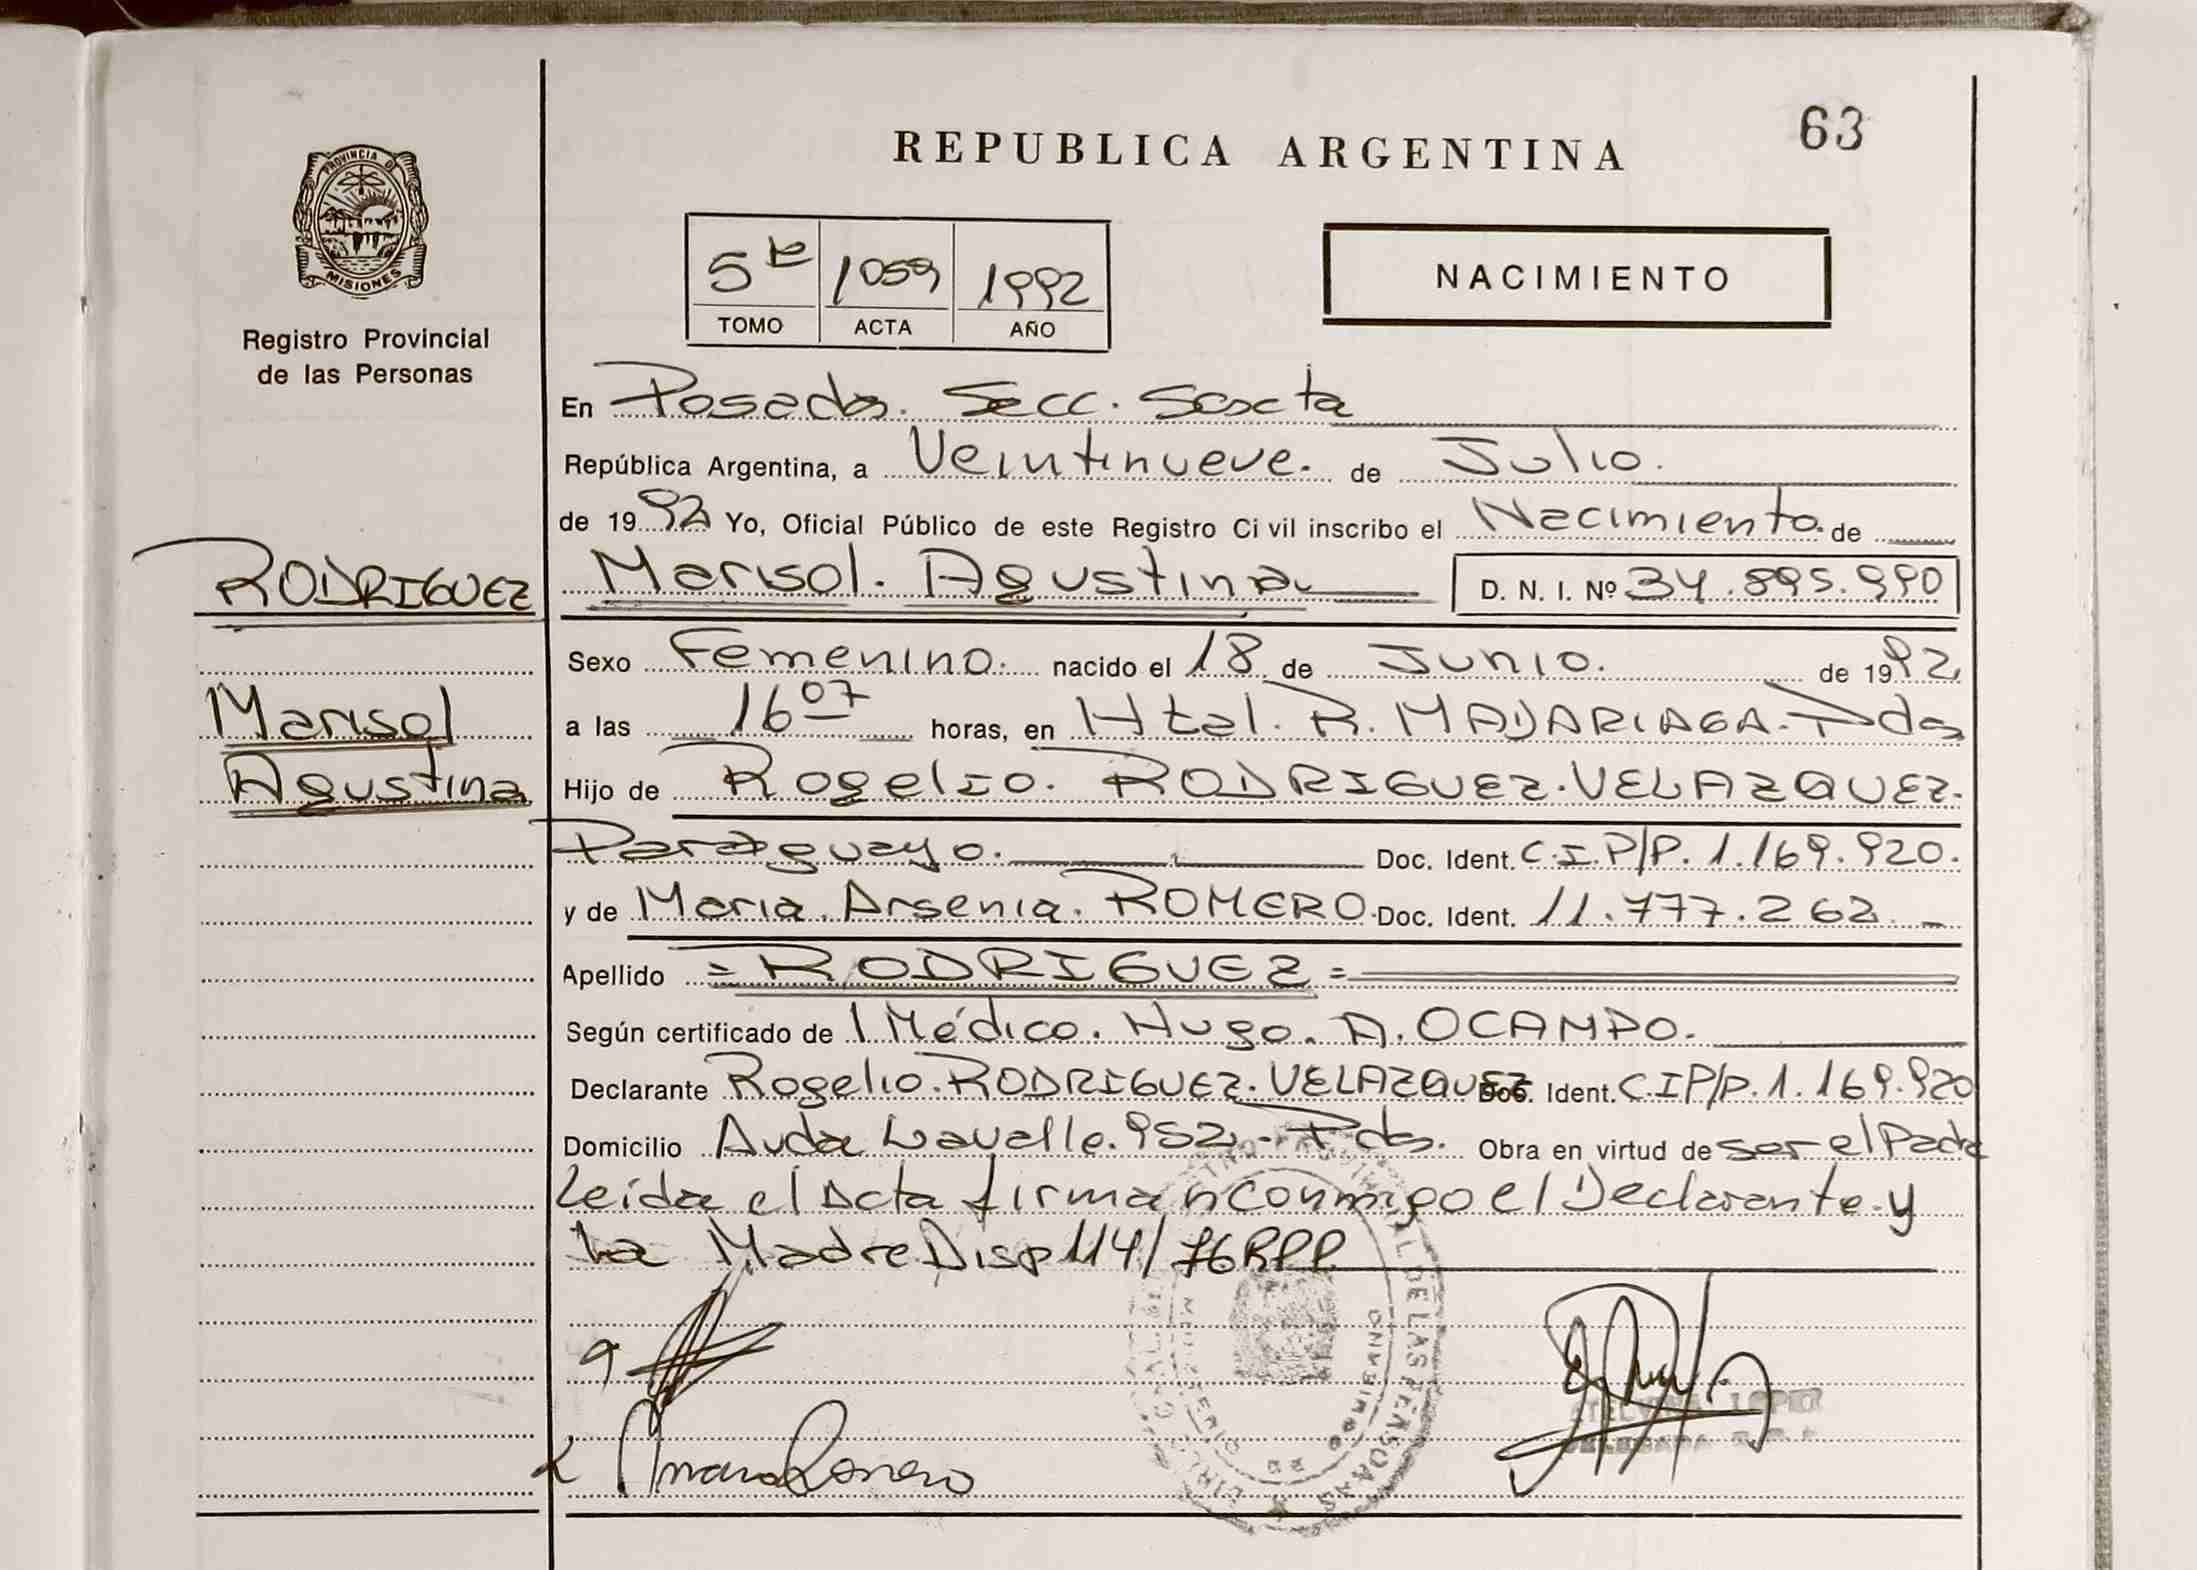 63
REPUBLICA ARGENTINA
PROVINCIA DE
MISIONES
Registro Provincial
de las Personas
5 1059 1992
TOMO ACTA AÑO
NACIMIENTO
En Posadas. Secc. Sexta
República Argentina, a Veintinueve. de Julio.
de 1992 Yo, Oficial Público de este Registro Civil inscribo el Nacimiento. de
RODRIGUEZ
Marisol
Agustina
Marisol. Agustina D. N. I. Nº 34.895.990
Sexo Femenino. nacido el 18 de Junio. de 1992
a las 16 07 horas, en Htal. R. MADARIAGA. Pdas
Hijo de Rogelio. RODRIGUEZ. VELAZQUEZ.
Paraguayo. Doc. Ident. C.I.P/P. 1.169.920.
y de Maria. Arsenia. ROMERO. Doc. Ident. 11.777.262
Apellido = RODRIGUEZ =
Según certificado de 1 Médico. Hugo. A. OCAMPO.
Declarante Rogelio. RODRIGUEZ. VELAZQUEZ Doc. Ident. C.I.P/P. 1.169.920
Domicilio Avda Lavalle. 952 - Pdas. Obra en virtud de ser el Padre
Leida el Acta firman conmigo el Declarante y
La Madre Disp 114/76 RPP
Maria Romero
LOPEZ
DELEGADA
DE LAS PERSONAS